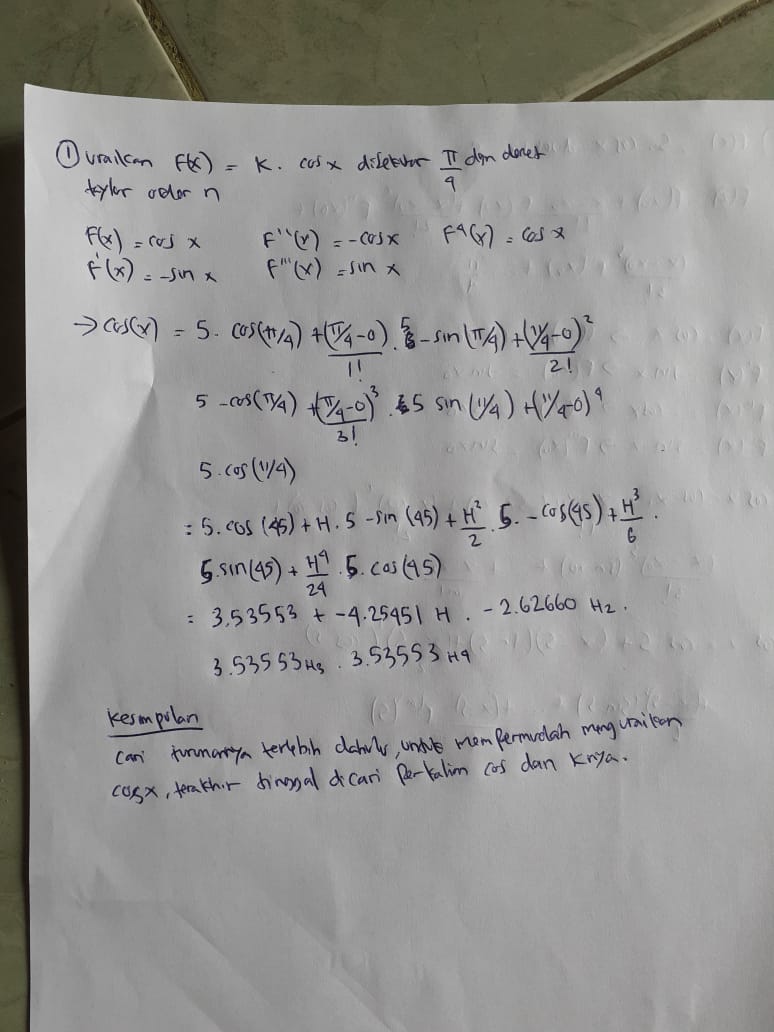 ① uraikan F(x) = K. cos x disekitar π/4 dgn deret
taylor order n
F(x) = cos x F''(x) = -cos x F⁴(x) = cos x
F'(x) = -sin x F'''(x) = sin x
→ cos(x) = 5. cos(π/4) + (π/4-0)/1! . 5 -sin(π/4) + (π/4-0)²/2!
5 -cos(π/4) + (π/4-0)³/3! . 5 sin(π/4) + (π/4-0)⁴
5.cos(π/4)
= 5. cos (45) + H. 5 -sin (45) + H²/2 . 5. -cos(45) + H³/6 .
5.sin(45) + H⁴/24 . 5. cos(45)
= 3,53553 + -4.25451 H . -2.62660 H2 .
3.53553 H3 . 3.53553 H4
kesimpulan
cari turunannya terlebih dahulu, untuk mempermudah menguraikan
cosx, terakhir tinggal dicari perkalian cos dan K nya.